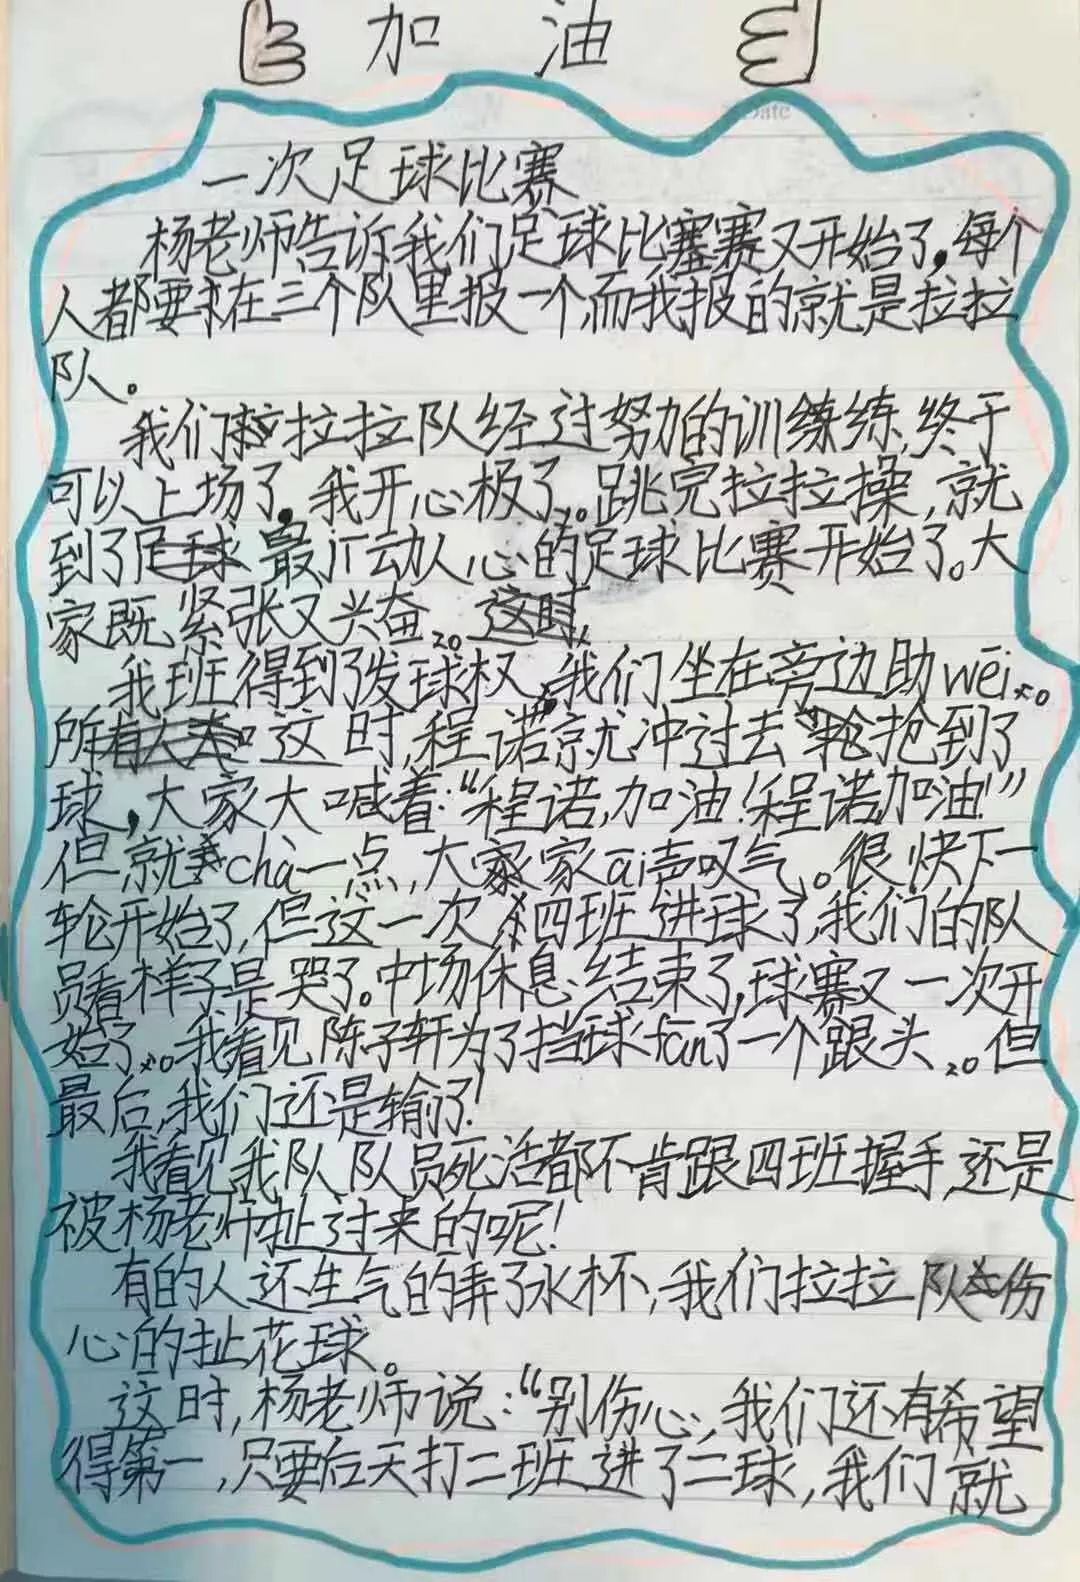 加油
Date
一次足球比赛
杨老师告诉我们足球比赛赛又开始了,每个
人都要求在三个队里报一个,而我报的就是拉拉
队。
我们拉拉队经过努力的训练练,终于
可以上场了,我开心极了。跳完拉拉操,就
到了足球最激动人心的足球比赛开始了。大
家既紧张又兴奋。这时,
我班得到了发球权,我们坐在旁边助wēi。
所有人大这时,程诺就冲过去抢到了
球,大家大喊着:“程诺,加油!程诺,加油!”
但就chà一点,大家家āi声叹气。很快下一
轮开始了,但这一次四班进球了,我们的队
员看样子是哭了。中场休息结束了,球赛又一次开
始了。我看见陈子轩为了挡球fān了一个跟头。但
最后,我们还是输了!
我看见我队队员死活都不肯跟四班握手,还是
被杨老师扯过来的呢!
有的人还生气的弄了水杯,我们拉拉队伤
心的扯花球。
这时,杨老师说:“别伤心,我们还有希望
得第一,只要后天打二班进了二球,我们就